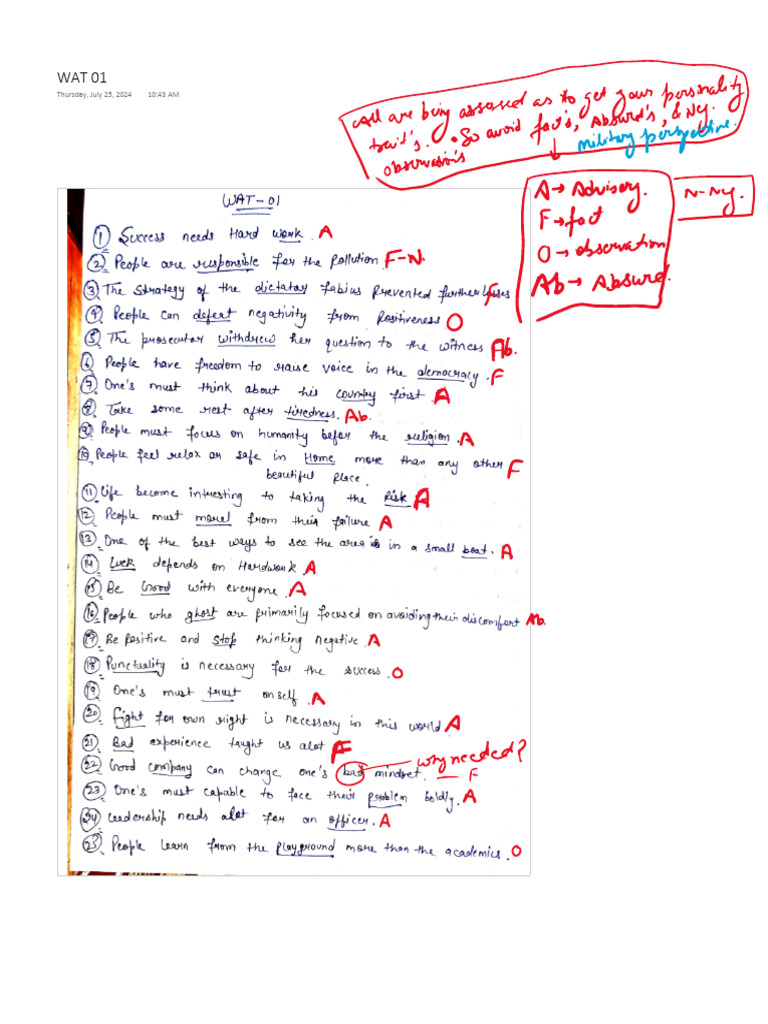 WAT 01
Thursday, July 25, 2024 10:43 AM
All are being assessed as to get your personality
trait's. • So avoid fact's, Absurd's, & Ng.
observation's
military perspective.
A → Advisory.
F → fact
O → observation
Ab → Absurd.
N - Ng.
WAT-01
1 Success needs Hard work. A
2 People are responsible for the pollution F-N.
3 The strategy of the dictator fabius prevented further losses F
4 People can defert negativity from positiveness O
5 The prosecutor withdrew her question to the witness Ab.
6 People have freedom to raise voice in the democracy. F
7 One's must think about his country first. A
8 Take some rest after tiredness. Ab.
9 People must focus on humanity befor the religion. A
10 People feel relax or safe in Home more than any other F
beautiful place.
11 Life become intresting to taking the Risk A
12 People must morel from their failure A
13 One of the best ways to see the area is in a small boat. A
14 Luck depends on Hardwork. A
15 Be Good with everyone. A
16 People who ghost are primarily focused on avoiding their discomfort Ab.
17 Be positive and stop thinking negative. A
18 Punctuality is necessary for the success. O
19 One's must trust onself. A
20 Fight for own right is necessary in this world A
21 Bad experience taught us alot F
22 Good company can change one's bad mindset. why needed? — F
23 One's must capable to face their problem boldly. A
24 Leadership needs alot for an officer. A
25 People learn from the playground more than the academics. O